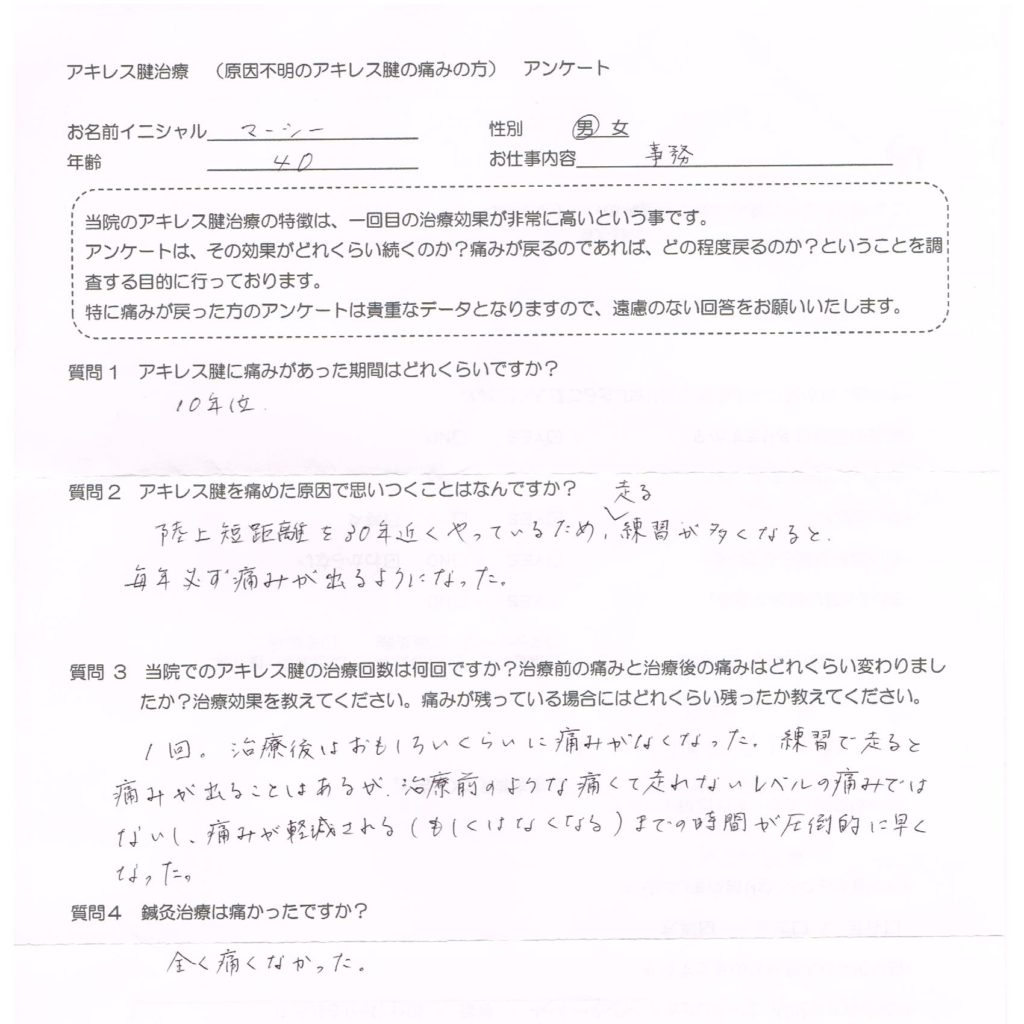 アキレス腱治療 (原因不明のアキレス腱の痛みの方) アンケート
お名前イニシャル マーシー 性別 男 女
年齢 40 お仕事内容 事務
当院のアキレス腱治療の特徴は、一回目の治療効果が非常に高いという事です。
アンケートは、その効果がどれくらい続くのか?痛みが戻るのであれば、どの程度戻るのか?ということを調
査する目的に行っております。
特に痛みが戻った方のアンケートは貴重なデータとなりますので、遠慮のない回答をお願いいたします。
質問1 アキレス腱に痛みがあった期間はどれくらいですか?
10年位.
質問2 アキレス腱を痛めた原因で思いつくことはなんですか?
走る
陸上短距離を30年近くやっているため,練習が多くなると.
毎年必ず痛みが出るようになった。
質問 3 当院でのアキレス腱の治療回数は何回ですか?治療前の痛みと治療後の痛みはどれくらい変わりまし
たか?治療効果を教えてください。痛みが残っている場合にはどれくらい残ったか教えてください。
1回。治療後はおもしろいくらいに痛みがなくなった。練習で走ると
痛みが出ることはあるが.治療前のような痛くて走れないレベルの痛みでは
ないし、痛みが軽減される(もしくはなくなる)までの時間が圧倒的に早く
なった。
質問4 鍼灸治療は痛かったですか?
全く痛くなかった。